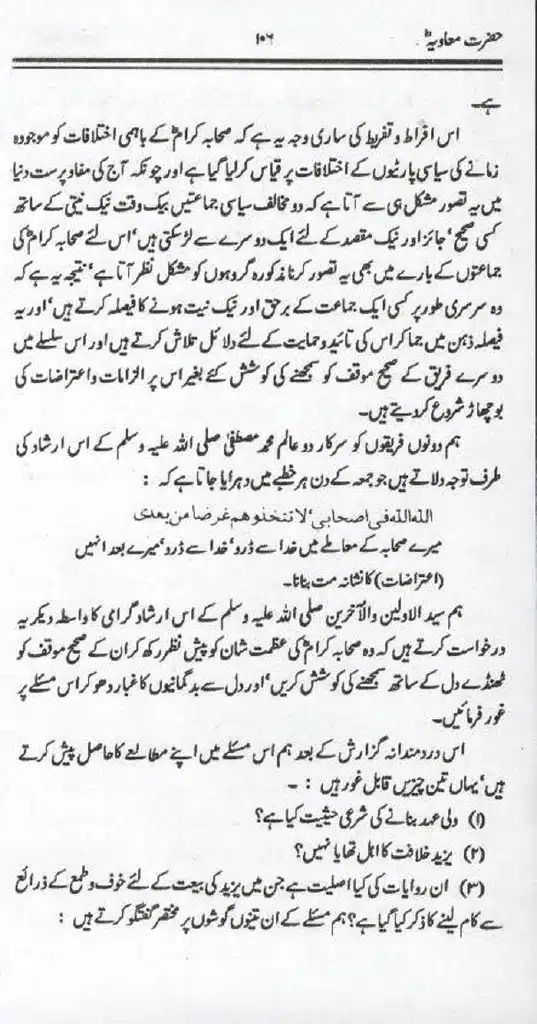 حضرت معاویہؓ ۱۰۶
ہے۔
اس افراط و تفریط کی ساری وجہ یہ ہے کہ صحابہ کرامؓ کے باہمی اختلافات کو موجودہ
زمانے کی سیاسی پارٹیوں کے اختلافات پر قیاس کر لیا گیا ہے اور چونکہ آج کی مفاد پرست دنیا
میں یہ تصور مشکل ہی سے آتا ہے کہ دو مخالف سیاسی جماعتیں بیک وقت نیک نیتی کے ساتھ
کسی صحیح' جائز اور نیک مقصد کے لئے ایک دوسرے سے لڑ سکتی ہیں' اس لئے صحابہ کرامؓ کی
جماعتوں کے بارے میں بھی یہ تصور کرنا مذکورہ گروہوں کو مشکل نظر آتا ہے' نتیجہ یہ ہے کہ
وہ سرسری طور پر کسی ایک جماعت کے برحق اور نیک نیت ہونے کا فیصلہ کرتے ہیں' اور یہ
فیصلہ ذہن میں جما کر اس کی تائید و حمایت کے لئے دلائل تلاش کرتے ہیں اور اس سلسلے میں
دوسرے فریق کے صحیح موقف کو سمجھنے کی کوشش کئے بغیر اس پر الزامات و اعتراضات کی
بوچھاڑ شروع کر دیتے ہیں۔
ہم دونوں فریقوں کو سرکار دو عالم محمد مصطفیٰ صلی اللہ علیہ وسلم کے اس ارشاد کی
طرف توجہ دلاتے ہیں جو جمعہ کے دن ہر خطبے میں دہرایا جاتا ہے کہ :
الله الله فى اصحابى' لا تتخذوهم غرضا من بعدى
میرے صحابہ کے معاملے میں خدا سے ڈرو' خدا سے ڈرو' میرے بعد انہیں
(اعتراضات) کا نشانہ مت بنانا۔
ہم سید الاولین والآخرین صلی اللہ علیہ وسلم کے اس ارشاد گرامی کا واسطہ دیکر یہ
درخواست کرتے ہیں کہ وہ صحابہ کرامؓ کی عظمت شان کو پیش نظر رکھ کر ان کے صحیح موقف کو
ٹھنڈے دل کے ساتھ سمجھنے کی کوشش کریں' اور دل سے بدگمانیوں کا غبار دھو کر اس مسئلے پر
غور فرمائیں۔
اس دردمندانہ گزارش کے بعد ہم اس مسئلے میں اپنے مطالعے کا حاصل پیش کرتے
ہیں' یہاں تین چیزیں قابل غور ہیں : ۔
(۱) ولی عہد بنانے کی شرعی حیثیت کیا ہے؟
(۲) یزید خلافت کا اہل تھا یا نہیں؟
(۳) ان روایات کی کیا اصلیت ہے جن میں یزید کی بیعت کے لئے خوف و طمع کے ذرائع
سے کام لینے کا ذکر کیا گیا ہے؟ ہم مسئلے کے ان تینوں گوشوں پر مختصر گفتگو کرتے ہیں :